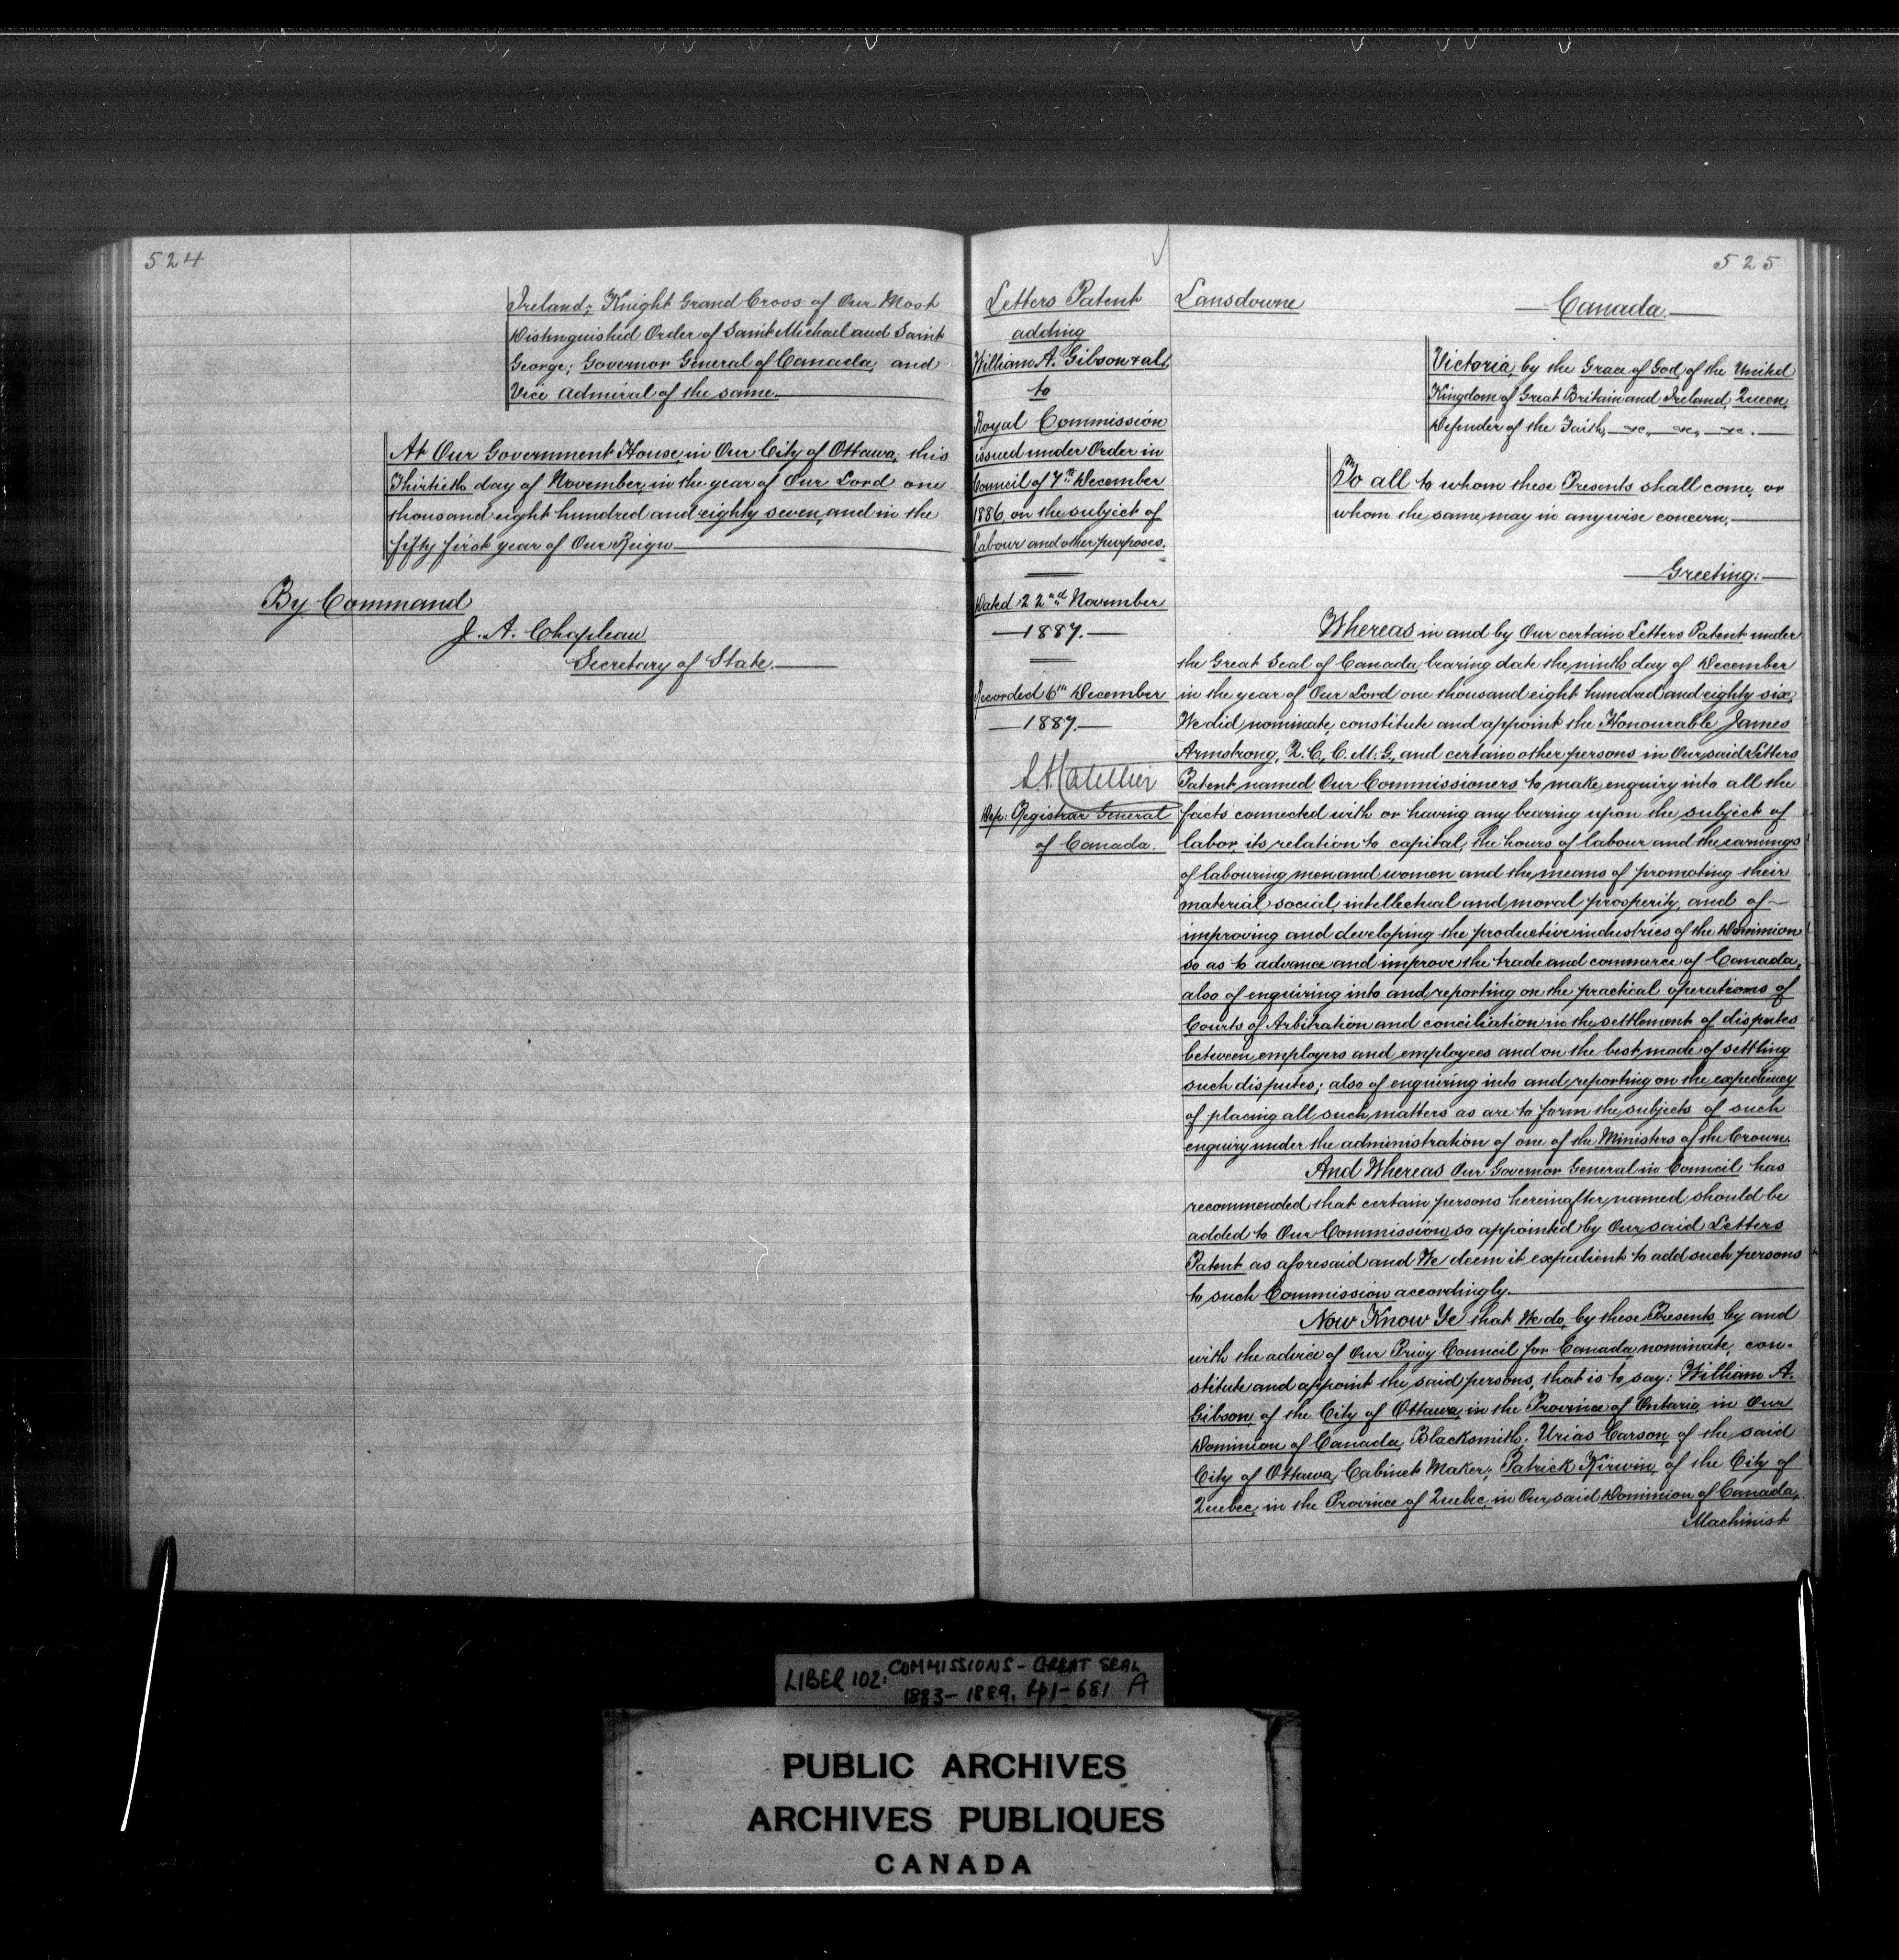 524
Ireland; Knight Grand Cross of Our Most
Distinguished Order of Saint Michael and Saint
George; Governor General of Canada, and
Vice Admiral of the same.
At Our Government House, in Our City of Ottawa, this
Thirtieth day of November, in the year of Our Lord one
thousand eight hundred and eighty seven, and in the
fifty first year of Our Reign
By Command
J. A. Chapleau
Secretary of State.
525
Letters Patent
adding
William A. Gibson & al,
to
Royal Commission
issued under Order in
Council of 7th December
1886, on the subject of
Labour and other purposes.
Dated 22nd November
1887.
Recorded 6th December
1887.
Dep: Registrar General
of Canada.
Lansdowne
Canada.
Victoria, by the Grace of God of the United
Kingdom of Great Britain and Ireland, Queen,
Defender of the Faith, &c, &c, &c.
To all to whom these Presents shall come, or
whom the same may in anywise concern,
Greeting:
Whereas in and by Our certain Letters Patent under
the Great Seal of Canada, bearing date the ninth day of December
in the year of Our Lord one thousand eight hundred and eighty six,
We did nominate, constitute and appoint the Honourable James
Armstrong, Q. C., C. M. G., and certain other persons in Our said Letters
Patent named Our Commissioners to make enquiry into all the
facts connected with or having any bearing upon the subject of
labor, its relation to capital, the hours of labour and the earnings
of labouring men and women and the means of promoting their
material, social, intellectual and moral prosperity, and of
improving and developing the productive industries of the Dominion
so as to advance and improve the trade and commerce of Canada,
also of enquiring into and reporting on the practical operations of
Courts of Arbitration and conciliation in the settlement of disputes
between employers and employees and on the best mode of settling
such disputes; also of enquiring into and reporting on the expediency
of placing all such matters as are to form the subjects of such
enquiry under the administration of one of the Ministers of the Crown.
And Whereas Our Governor General in Council has
recommended that certain persons hereinafter named should be
added to Our Commission so appointed by Our said Letters
Patent as aforesaid and We deem it expedient to add such persons
to such Commission accordingly.
Now Know Ye that We do, by these Presents, by and
with the advice of Our Privy Council for Canada, nominate, con-
stitute and appoint the said persons, that is to say: William A.
Gibson, of the City of Ottawa, in the Province of Ontario, in Our
Dominion of Canada, Blacksmith; Urias Carson, of the said
City of Ottawa, Cabinet Maker; Patrick Kirwin, of the City of
Quebec, in the Province of Quebec, in Our said Dominion of Canada,
Machinist
LIBER 102: COMMISSIONS - GREAT SEAL
1883-1889, 441-681 A
PUBLIC ARCHIVES
ARCHIVES PUBLIQUES
CANADA